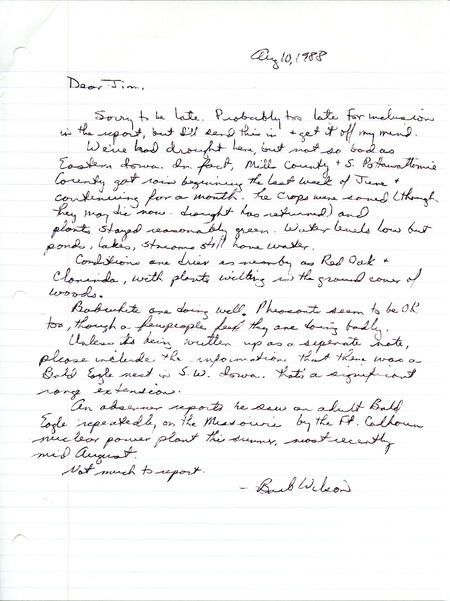 Aug 10, 1988
Dear Jim,
Sorry to be late. Probably too late for inclusion
in the report, but I'll send this in & get it off my mind.
We've had drought here, but not so bad as
Eastern Iowa. In fact, Mills County & S. Pottawattamie
County got rain beginning the last week of June &
continuing for a month. The crops were saved (though
they may die now - drought has returned) and
plants stayed reasonably green. Water levels low but
ponds, lakes, streams still have water.
Conditions are drier as nearby as Red Oak &
Clarinda, with plants wilting in the ground cover of
woods.
Bobwhite are doing well. Pheasants seem to be OK
too, though a few people feel they are doing badly.
Unless its being written up as a seperate note,
please include the information that there was a
Bald Eagle nest in S.W. Iowa. That's a significant
range extension.
An observer reports he saw an adult Bald
Eagle repeatedly, on the Missouri by the Ft. Calhoun
nuclear power plant this summer, most recently
mid August.
Not much to report.
- Barb Wilson